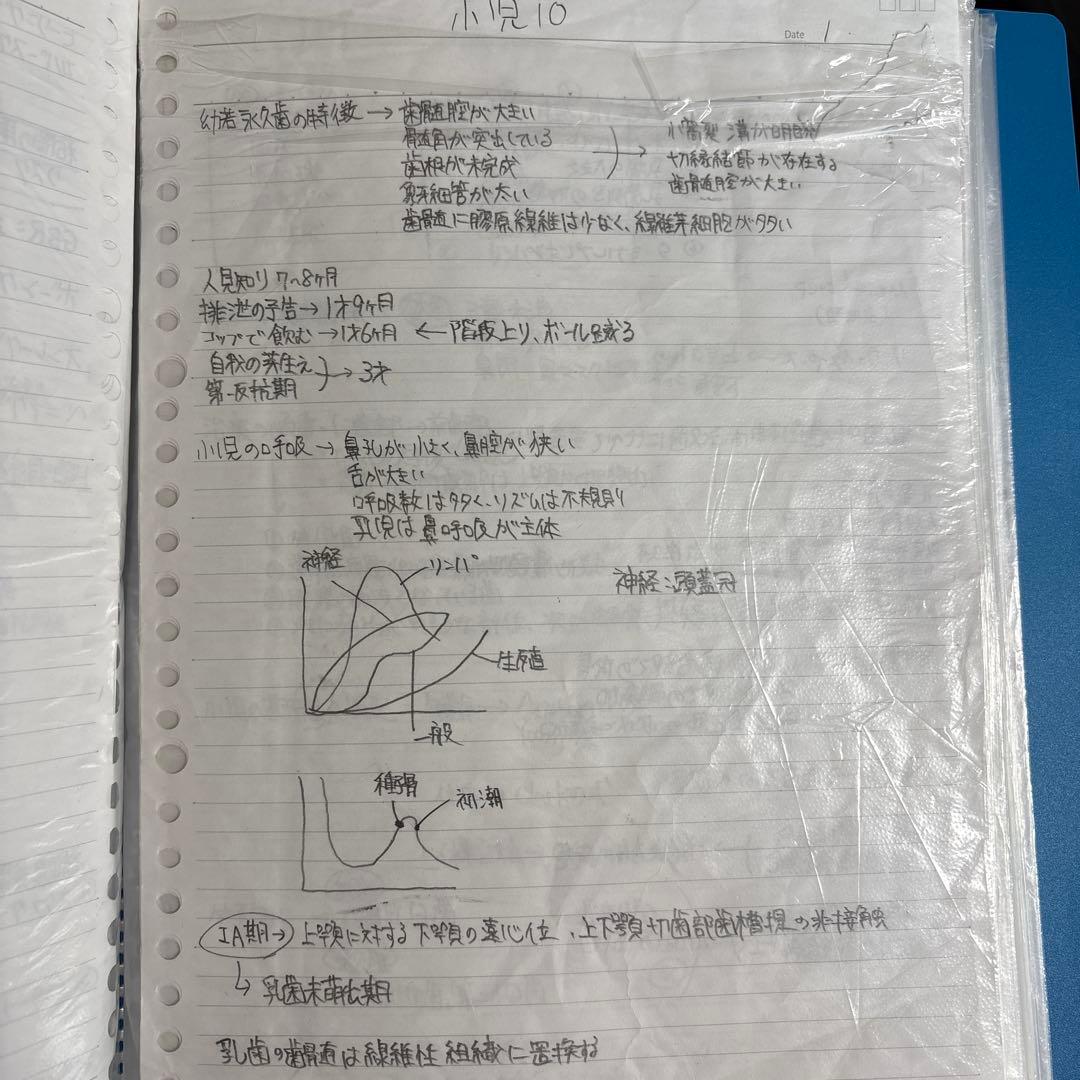 小児10
Date 1
幼若永久歯の特徴 → 歯髄腔が大きい
髄角が突出している
歯根が未完成
象牙細管が太い
歯髄に膠原線維は少なく、線維芽細胞が多い
→ 小窩裂溝が明瞭
切縁結節が存在する
歯髄腔が大きい
人見知り 7〜8ヶ月
排泄の予告→1才9ヶ月
コップで飲む→1才6ヶ月 ← 階段上り、ボール蹴る
自我の芽生え
第一反抗期
→3才
小児の呼吸→ 鼻孔が小さく、鼻腔が狭い
舌が大きい
呼吸数は多く、リズムは不規則
乳児は鼻呼吸が主体
神経
リンパ
神経:頭蓋冠
生殖
一般
種子骨
初潮
IA期→ 上顎に対する下顎の遠心位、上下顎切歯部歯槽堤の非接触
↳ 乳歯未萌出期
乳歯の歯髄は線維性組織に置換する